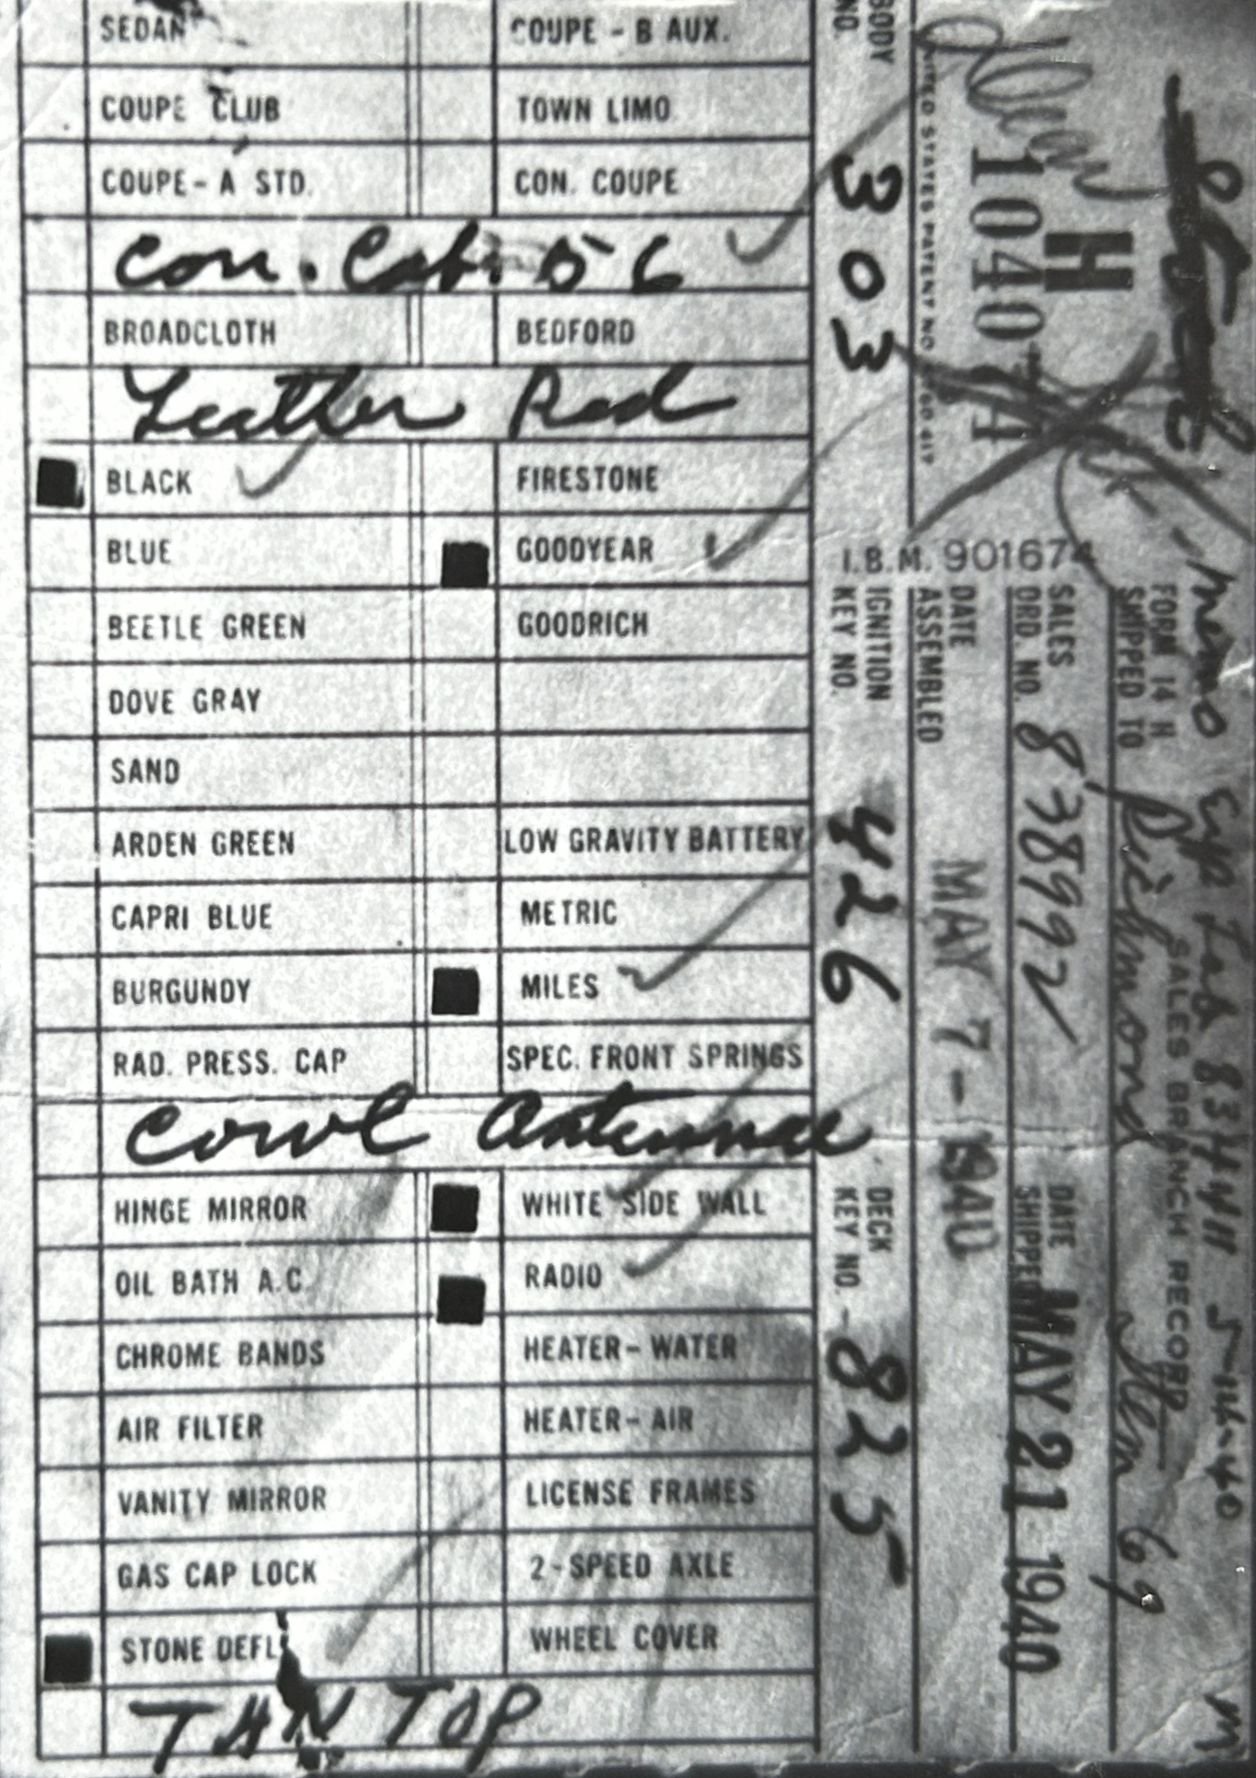 SEDAN COUPE - B AUX.
COUPE CLUB TOWN LIMO
COUPE - A STD. CON. COUPE
Con. Cab. 56
BROADCLOTH BEDFORD
Leather Red
BLACK FIRESTONE
BLUE GOODYEAR
BEETLE GREEN GOODRICH
DOVE GRAY
SAND
ARDEN GREEN LOW GRAVITY BATTERY
CAPRI BLUE METRIC
BURGUNDY MILES
RAD. PRESS. CAP SPEC. FRONT SPRINGS
Cowl Antennae
HINGE MIRROR WHITE SIDE WALL
OIL BATH A.C. RADIO
CHROME BANDS HEATER - WATER
AIR FILTER HEATER - AIR
VANITY MIRROR LICENSE FRAMES
GAS CAP LOCK 2 - SPEED AXLE
STONE DEFL. WHEEL COVER
TAN TOP
I.B.M. 901674
Memo Exp Tag 83H411 5-14-40 M
SALES BRANCH RECORD
FORM 14 H
SHIPPED TO Richmond Stem 69
H
SALES ORD. NO. 838992 DATE SHIPPED MAY 21 1940
MAY 21 1940
104074
DATE ASSEMBLED MAY 7 - 1940
UNITED STATES PATENT NO.
BODY NO. 303 IGNITION KEY NO. 426 DECK KEY NO. 825